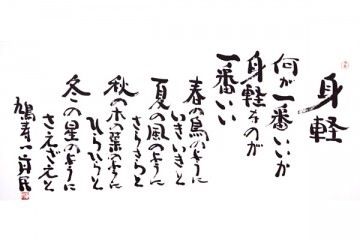 身軽
何が一番いいか
身軽なのが
一番いい
春の鳥のように
いきいきと
夏の風のように
さらさらと
秋の木の葉のように
ひらひらと
冬の星のように
さえざえと
鳩寿一真民